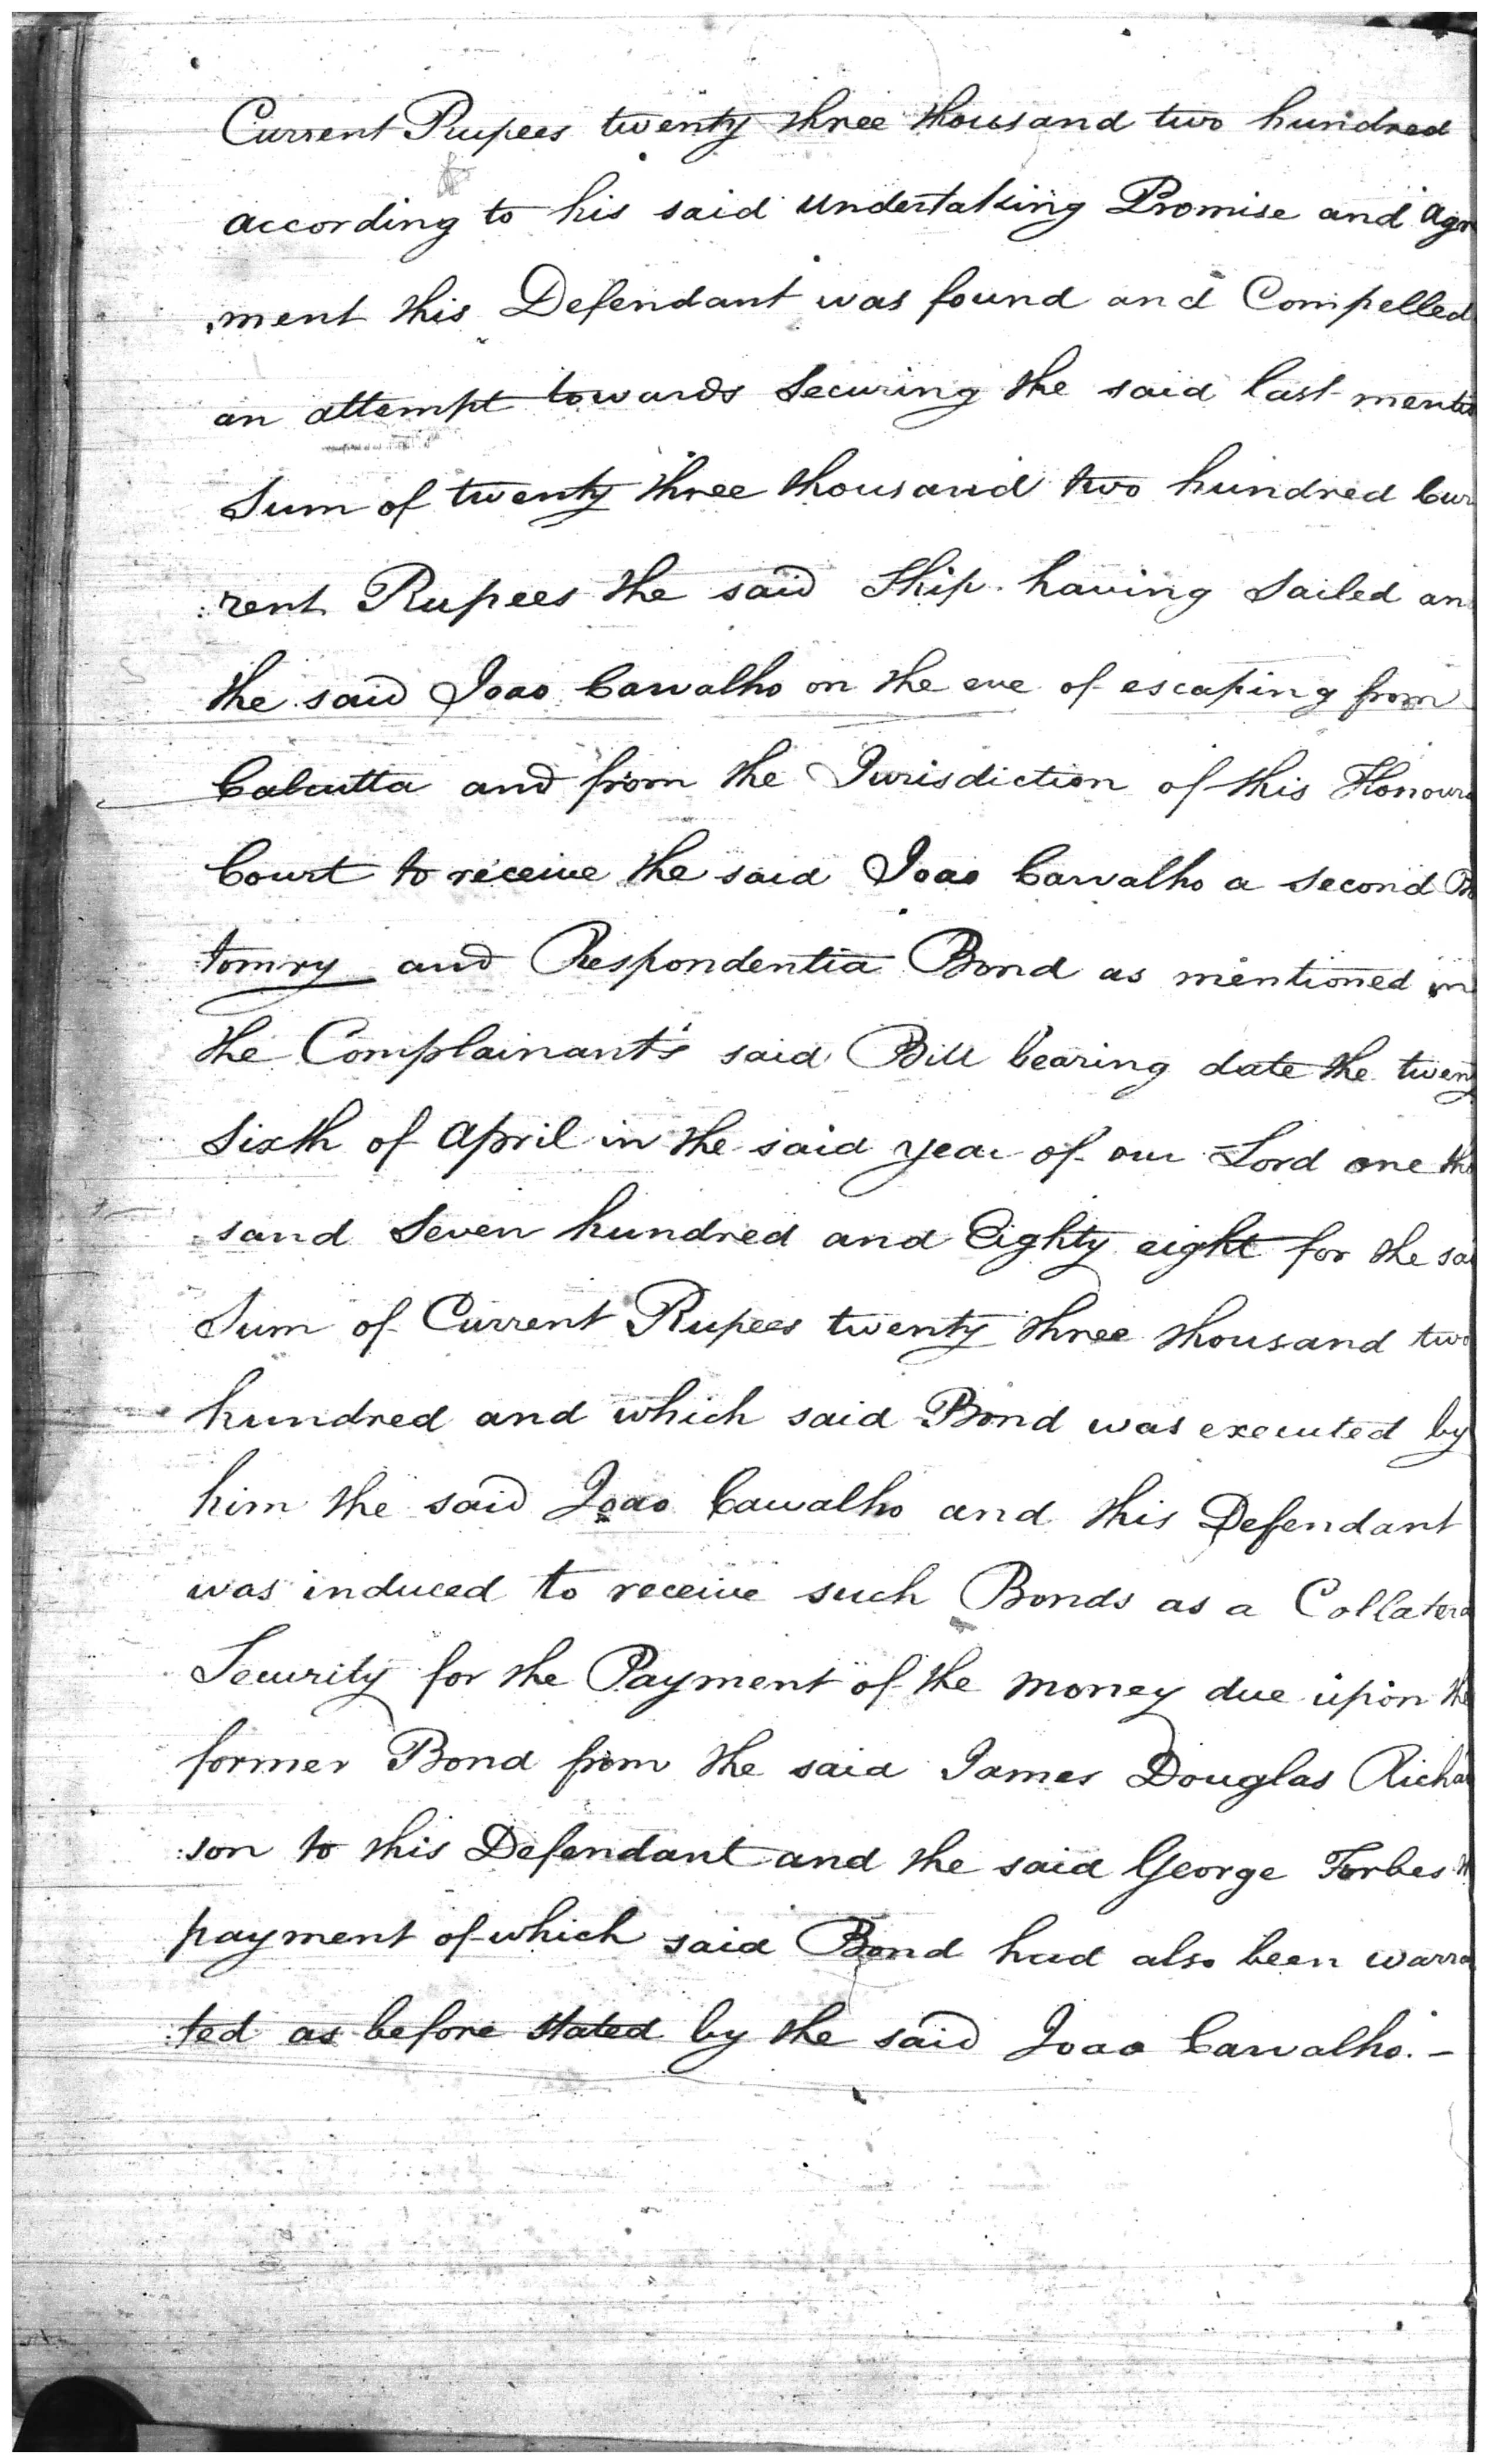 Current Rupees twenty three thousand two hundred
according to his said undertaking Promise and Agr
ment this Defendant was found and Compelled
an attempt towards Securing the said last mentio
Sum of twenty three thousand two hundred Cur
:rent Rupees the said Ship having Sailed an
the said Joao Carvalho on the eve of escaping from
Calcutta and from the Jurisdiction of this Honour
Court to receive the said Joao Carvalho a second Bo
:tomry and Respondentia Bond as mentioned in
the Complainant's said Bill bearing date the twen
Sixth of April in the said year of our Lord one tho
sand Seven hundred and Eighty eight for the sai
Sum of Current Rupees twenty three thousand two
hundred and which said Bond was executed by
him the said Joao Carvalho and this Defendant
was induced to receive such Bonds as a Collatera
Security for the Payment of the money due upon the
former Bond from the said James Douglas Richa
:son to this Defendant and the said George Forbes
payment of which said Bond had also been warra
:ted as before stated by the said Joao Carvalho. –